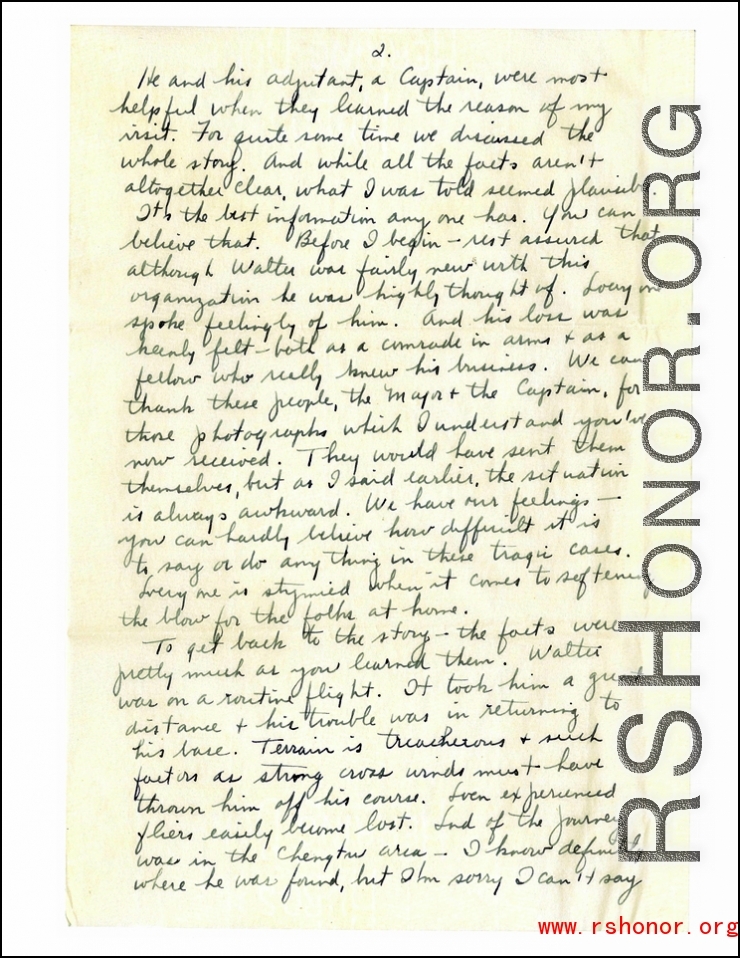 2.
He and his adjutant, a Captain, were most
helpful when they learned the reason of my
visit. For quite some time we discussed the
whole story. And while all the facts aren't
altogether clear, what I was told seemed plausible.
It's the best information any one has. You can
believe that. Before I begin - rest assured that
although Walter was fairly new with this
organization he was highly thought of. Every one
spoke feelingly of him. And his loss was
keenly felt - both as a comrade in arms & as a
fellow who really knew his business. We can
thank these people, the Major & the Captain, for
those photographs which I understand you've
now received. They would have sent them
themselves, but as I said earlier, the situation
is always awkward. We have our feelings -
you can hardly believe how difficult it is
to say or do any thing in these tragic cases.
Every one is stymied when it comes to softening
the blow for the folks at home.
To get back to the story - the facts were
pretty much as you learned them. Walter
was on a routine flight. It took him a great
distance & his trouble was in returning to
his base. Terrain is treacherous & such
factors as strong cross winds must have
thrown him off his course. Even experienced
fliers easily become lost. End of the journey
was in the Chengtu area - I know definitely
where he was found, but I'm sorry I can't say
RSHONOR.ORG
www.rshonor.org